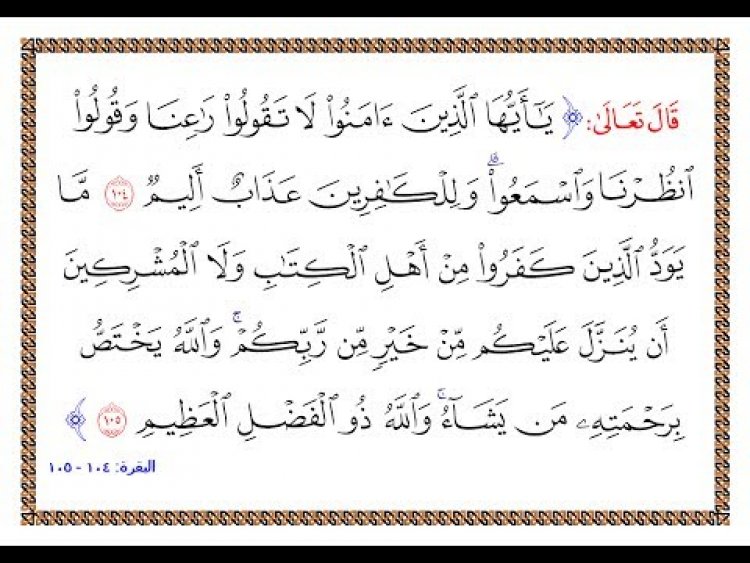 قَالَ تَعَالَىٰ: ﴿ يَـٰٓأَيُّهَا ٱلَّذِينَ ءَامَنُوا۟ لَا تَقُولُوا۟ رَٰعِنَا وَقُولُوا۟
ٱنظُرْنَا وَٱسْمَعُوا۟ ۗ وَلِلْكَـٰفِرِينَ عَذَابٌ أَلِيمٌ ١٠٤ مَّا
يَوَدُّ ٱلَّذِينَ كَفَرُوا۟ مِنْ أَهْلِ ٱلْكِتَـٰبِ وَلَا ٱلْمُشْرِكِينَ
أَن يُنَزَّلَ عَلَيْكُم مِّنْ خَيْرٍ مِّن رَّبِّكُمْ ۚ وَٱللَّهُ يَخْتَصُّ
بِرَحْمَتِهِۦ مَن يَشَآءُ ۚ وَٱللَّهُ ذُو ٱلْفَضْلِ ٱلْعَظِيمِ ١٠٥ ﴾
البقرة: ١٠٤ - ١٠٥